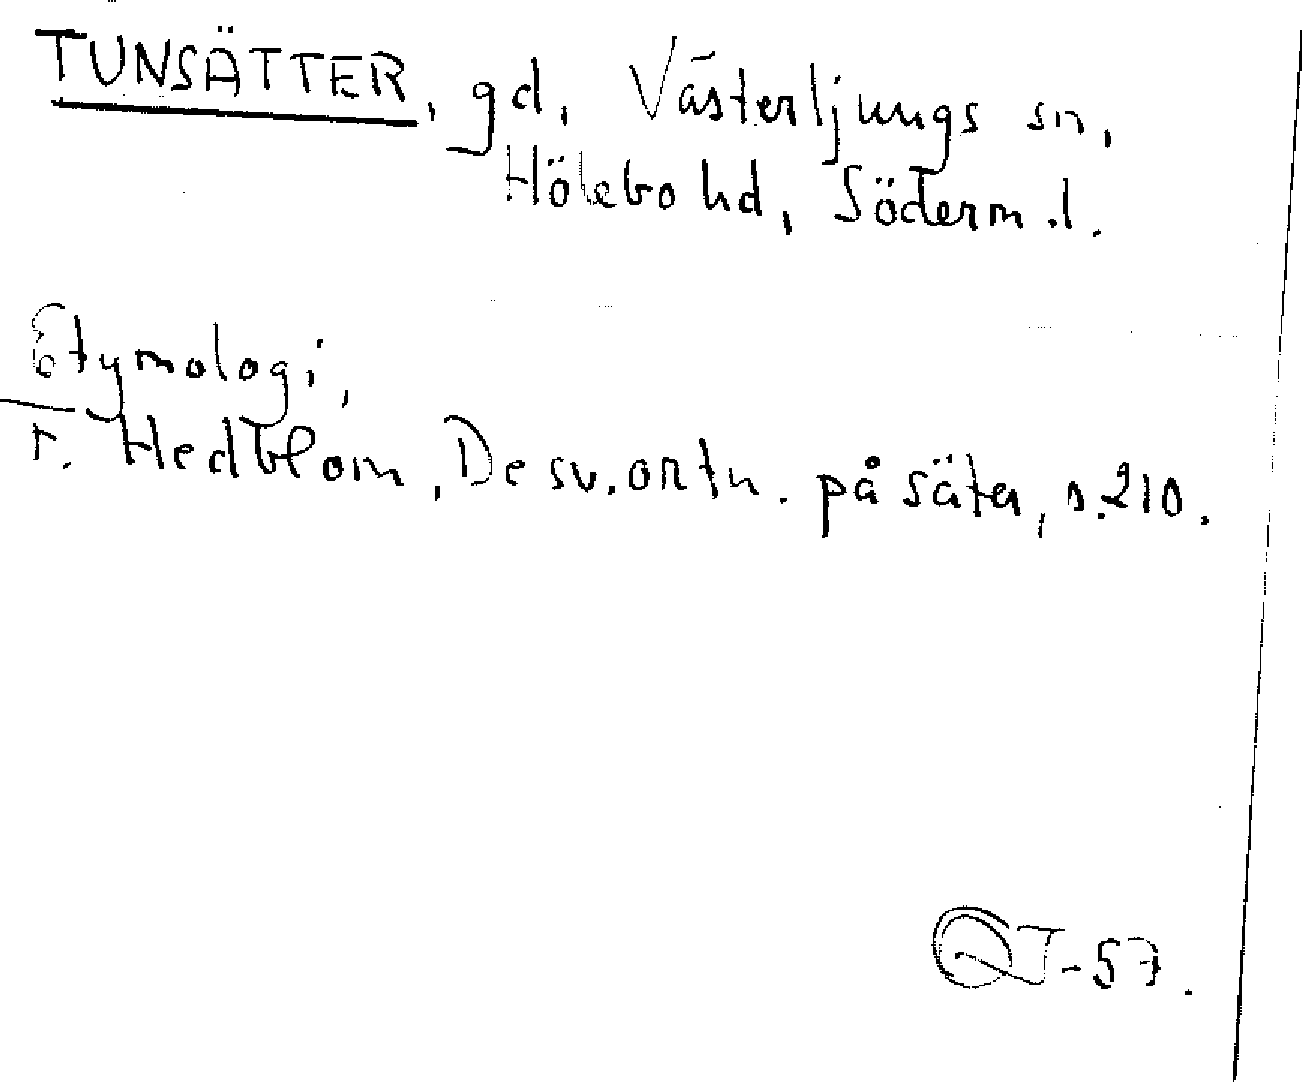 TUNSÄTTER, gd, Västerljungs sn,
Hölebo hd, Söderm.l.
Etymologi,
F. Hedblom, De sv. ortn. på säter, s. 210.
-57.